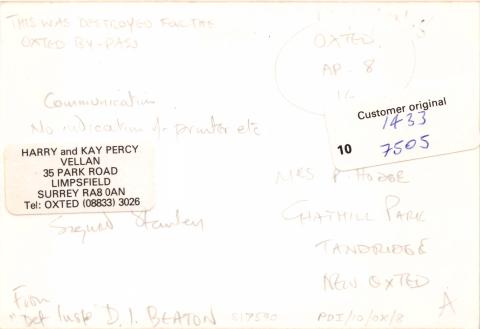 THIS WAS DESTROYED FOR THE
OXTED BY-PASS
OXTED
AP. 8
Communication
No indication of printer etc
Customer original
1433
10 7505
HARRY and KAY PERCY
VELLAN
35 PARK ROAD
LIMPSFIELD
SURREY RA8 0AN
Tel: OXTED (08833) 3026
MRS P. HODGE
CHATHILL PARK
TANDRIDGE
NEW OXTED
Signed Stanley
From
"Det Insp" D. I. BEATON S17590 PDI/10/OX/8
A